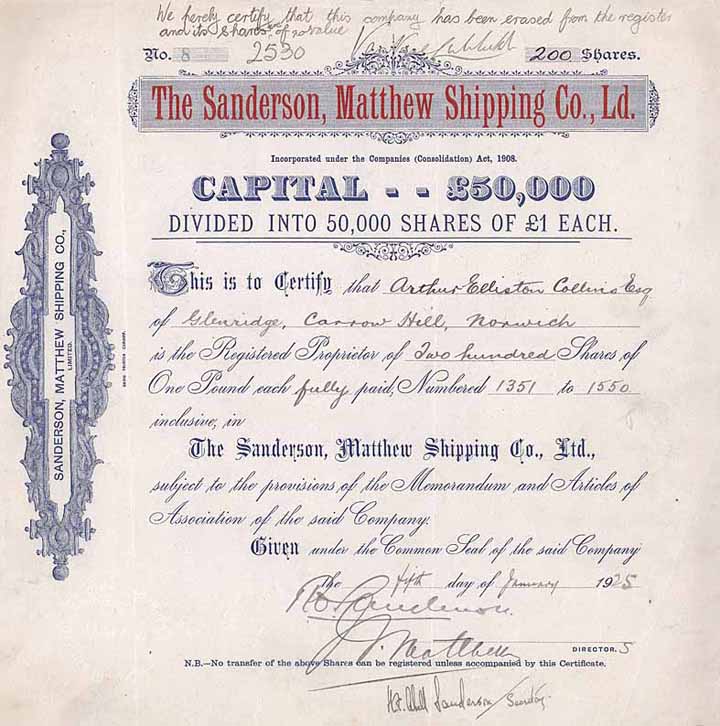 We hereby certify that this company has been erased from the register
and its shares are of no value
No. 8 2530 200 Shares.
The Sanderson, Matthew Shipping Co., Ld.
Incorporated under the Companies (Consolidation) Act, 1908.
CAPITAL - - £50,000
DIVIDED INTO 50,000 SHARES OF £1 EACH.
This is to Certify that Arthur Elliston Collins Esq
of Glenridge, Carrow Hill, Norwich
is the Registered Proprietor of Two hundred Shares of
One Pound each fully paid, Numbered 1351 to 1550
inclusive, in
The Sanderson, Matthew Shipping Co., Ltd.,
subject to the provisions of the Memorandum and Articles of
Association of the said Company.
Given under the Common Seal of the said Company
the fifth day of January 1925
Sanderson.
J. Matthew
DIRECTORS
N.B.—No transfer of the above Shares can be registered unless accompanied by this Certificate.
Sanderson Secretary
SANDERSON, MATTHEW SHIPPING CO.,
LIMITED.